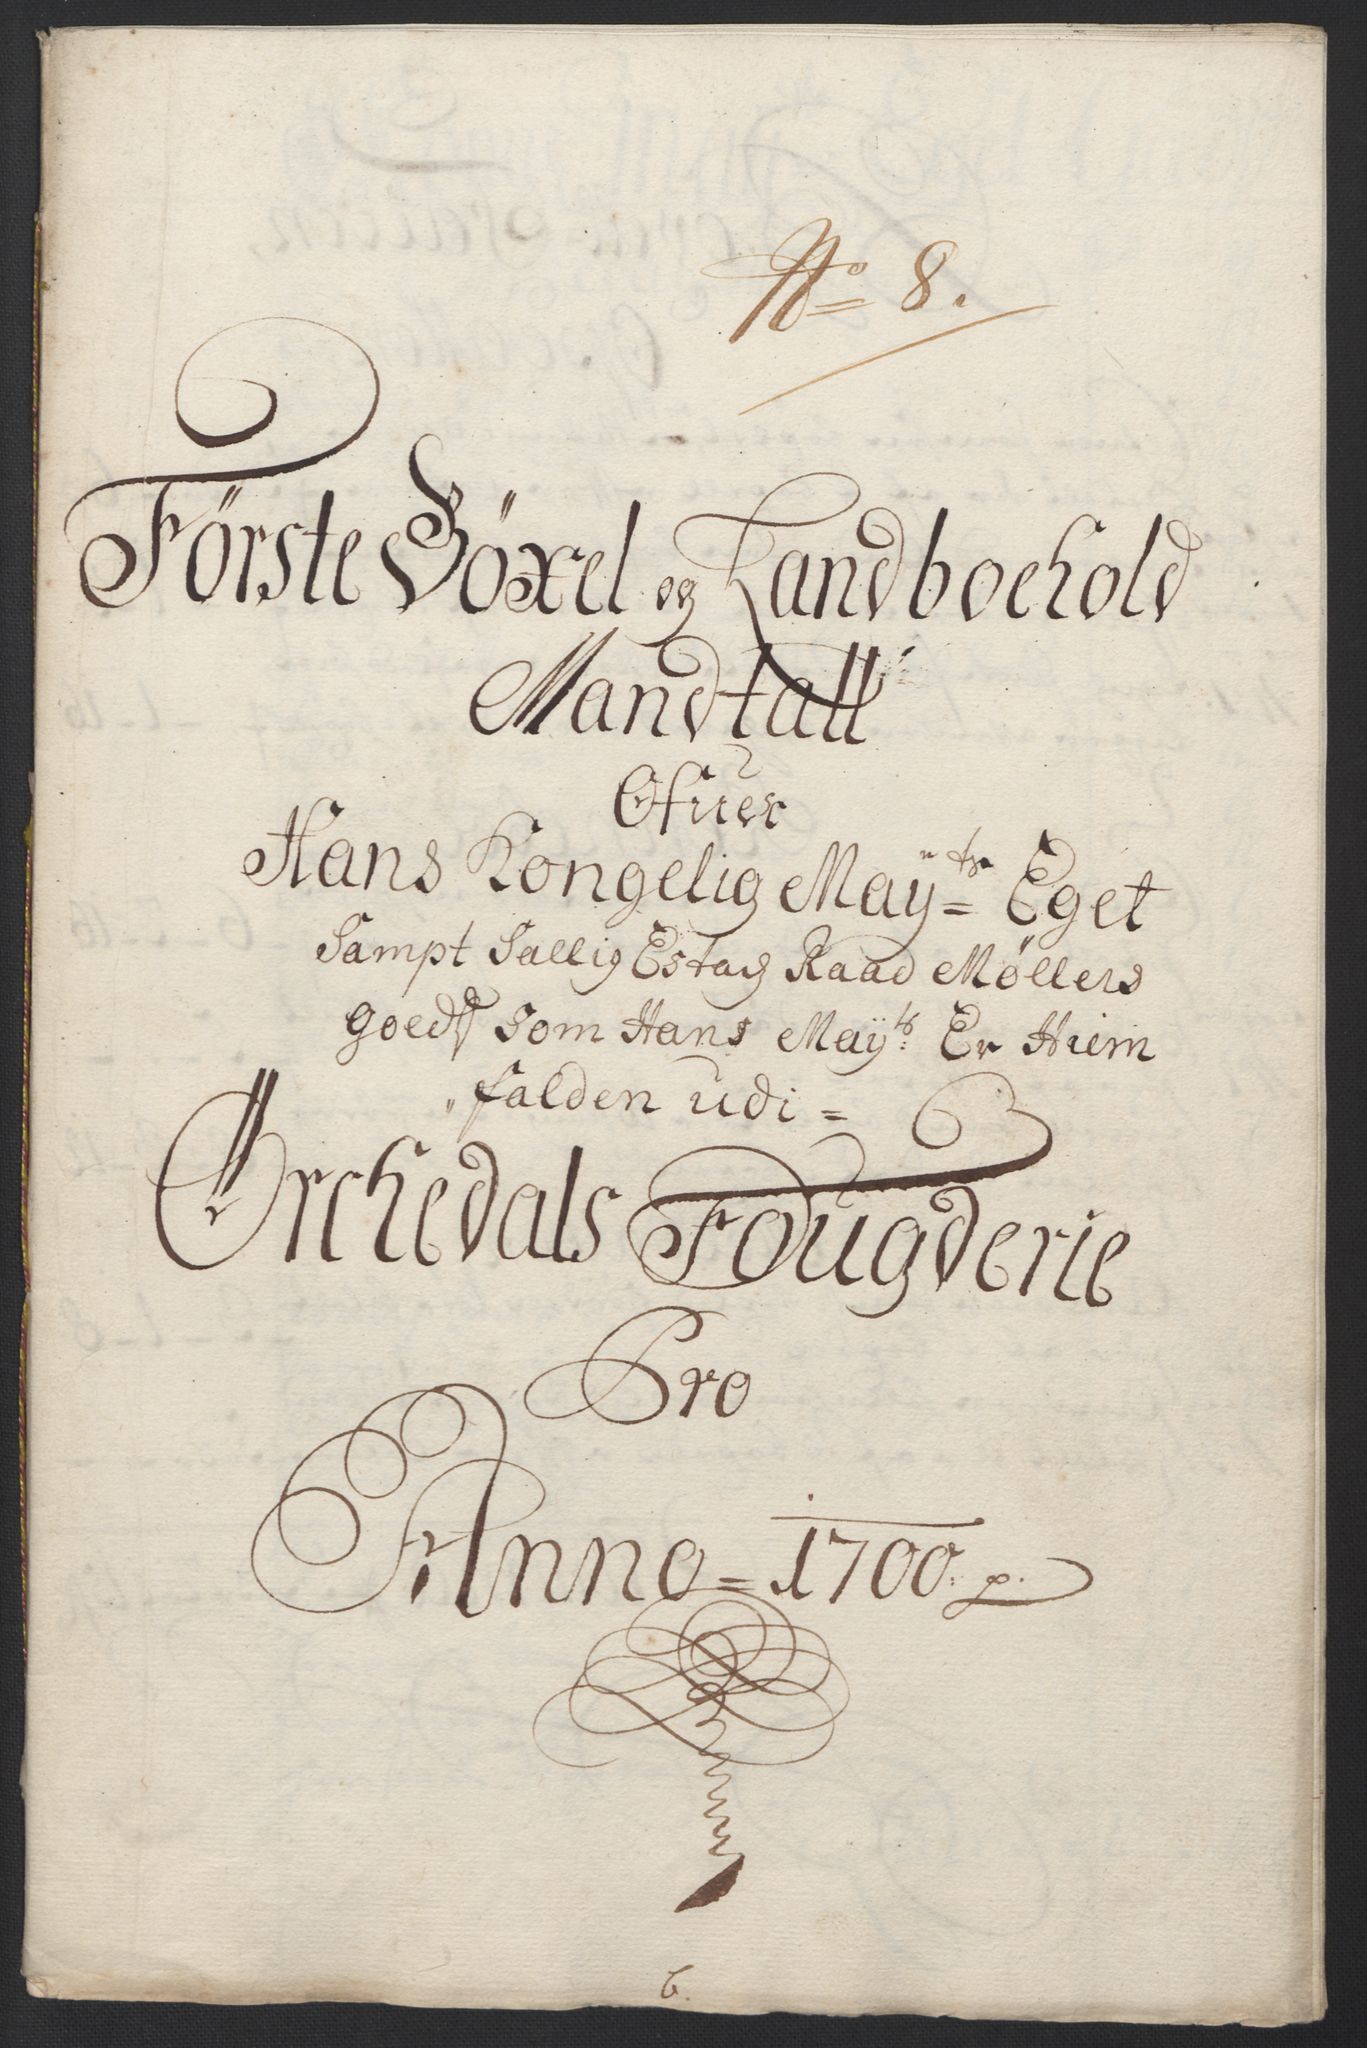 No 8.
Förste Böxel og Landboehold
Mandtall
Ofuer
Hans Kongelig Maÿts Eget
Sampt Sallig Estads Raad Möllers
goeds som Hans Maÿts Er Hiem
falden udi =
Orchedals Fougderie
Pro
Anno = 1700 p.
6.